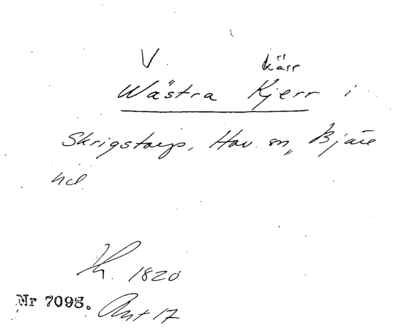 V. kärr
Wästra Kjerr i
Skrigstorps, Hov. sn, Bjäre
hd
1820
Nr 7098. Ant 17